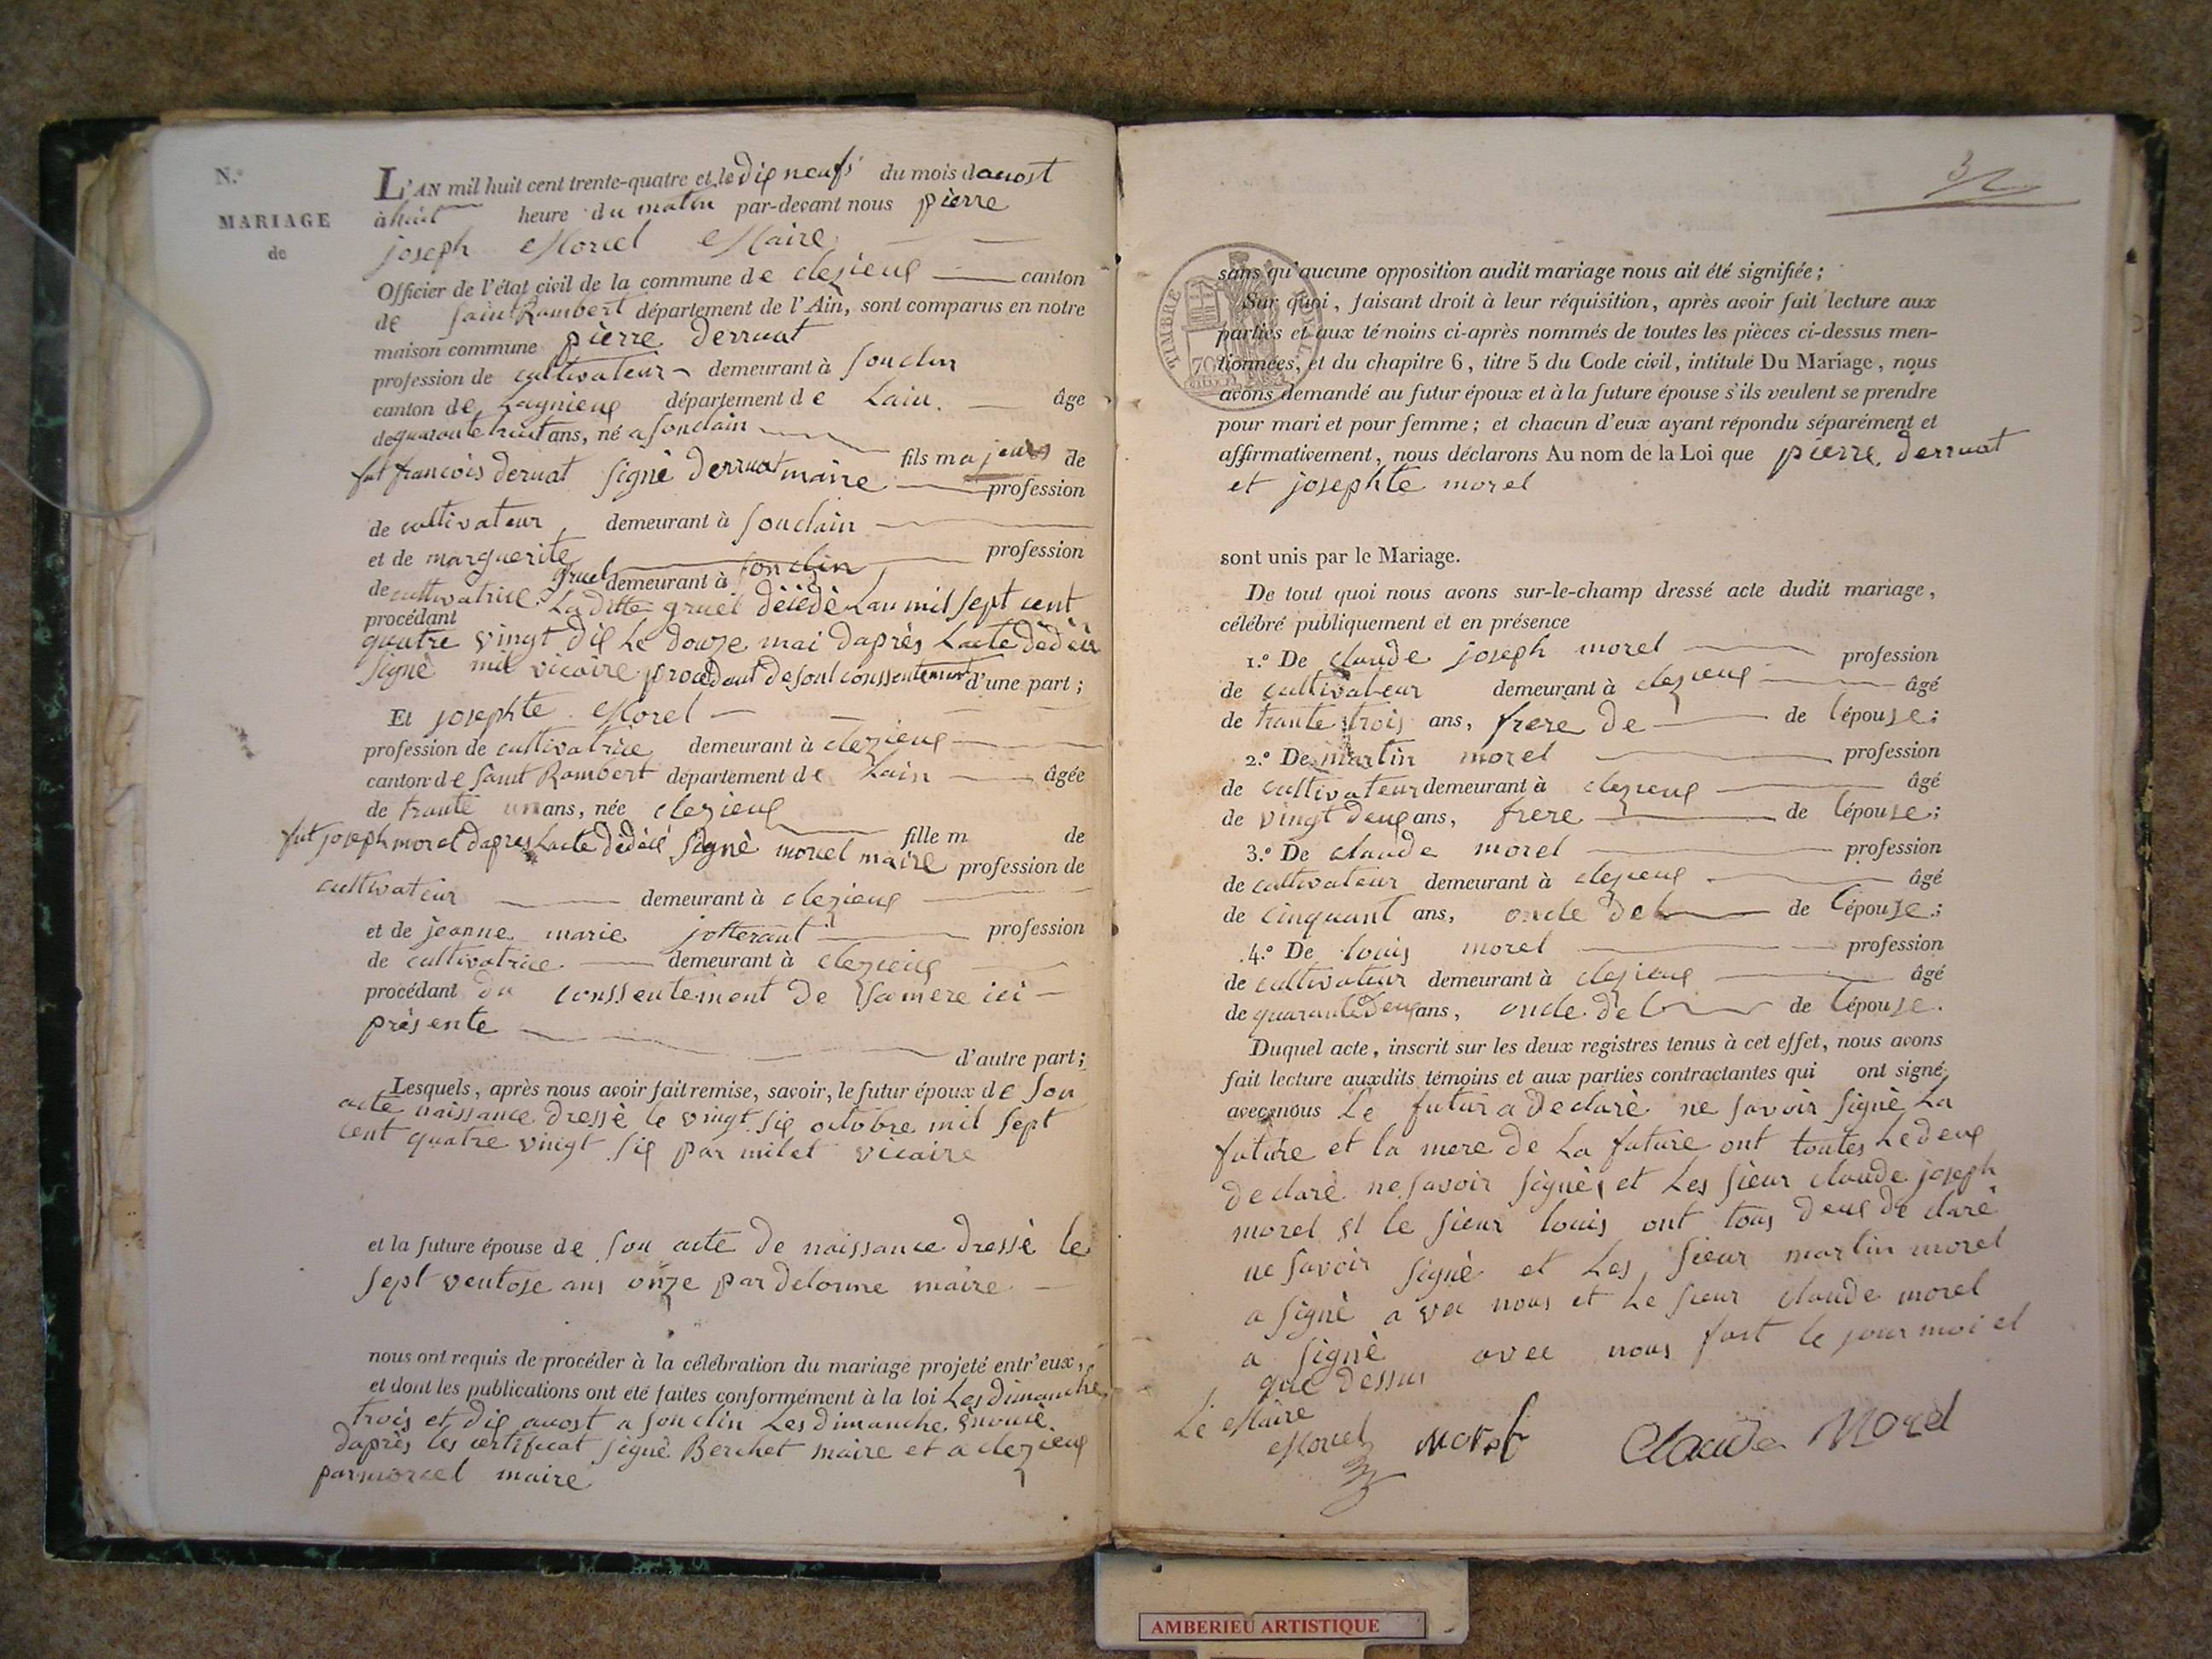 N.o
MARIAGE
de
L'AN mil huit cent trente-quatre et le dix neufs du mois d auost
à huit heure du matin par-devant nous pierre
joseph Morel Maire
Officier de l'état civil de la commune de clezieux canton
de saint Rambert département de l'Ain, sont comparus en notre
maison commune pierre derruat
profession de cultivateur demeurant à souclin
canton de Lagnieux département de Lain. âge
de quaroute huit ans, né a souclain
fils majeur de
fut francois deruat signè derruat maire profession
de cultivateur demeurant à souclain
et de marguerite profession
gruel
de cultivatrice. demeurant à souclin
procédant La ditte gruel dècèdè Lan mil sept cent
quatre vingt dix Le douze mai daprès Lacte dèdècè
signè milet vicaire procèdant de sont conssentement d'une part;
Et josephte Morel
profession de cultivatrice demeurant à clezieux
canton de saint Rambert département de Lain âgée
de trante un ans, née clezieux
fille m de
fut joseph morel dapres Lacte dèdècè signè morel maire profession de
cultivateur demeurant à clezieux
et de jeanne marie jotterant profession
de cultivatrice demeurant à clezieux
procédant du conssentement de sa mere ici
présente
d'autre part;
Lesquels, après nous avoir fait remise, savoir, le futur époux de son
acte naissance dressè le vingt six octobre mil sept
cent quatre vingt six par milet vicaire
et la future épouse de son acte de naissance dressè le
sept ventose ans onze par delorme maire
nous ont requis de procéder à la célébration du mariage projeté entr'eux,
et dont les publications ont été faites conformément à la loi Les dimanche
trois et dix auost a souclin Les dimanche
daprès les certificat signè Berchet maire et a clezieux
par morel maire
3
sans qu'aucune opposition audit mariage nous ait été signifiée;
Sur quoi, faisant droit à leur réquisition, après avoir fait lecture aux
parties et aux témoins ci-après nommés de toutes les pièces ci-dessus men-
tionnées, et du chapitre 6, titre 5 du Code civil, intitulé Du Mariage, nous
avons demandé au futur époux et à la future épouse s'ils veulent se prendre
pour mari et pour femme; et chacun d'eux ayant répondu séparément et
affirmativement, nous déclarons Au nom de la Loi que pierre derruat
et josephte morel
TIMBRE
70
sont unis par le Mariage.
De tout quoi nous avons sur-le-champ dressé acte dudit mariage,
célébré publiquement et en présence
1.o De claude joseph morel profession
de cultivateur demeurant à clezieux âgé
de trante trois ans, frere de de lépouse;
2.o De martin morel profession
de cultivateur demeurant à clezieux âgé
de vingt deux ans, frere de lépouse;
3.o De claude morel profession
de cultivateur demeurant à clezieux âgé
de cinquant ans, oncle de l de lépouse;
4.o De louis morel profession
de cultivateur demeurant à clezieux âgé
de quarante deux ans, oncle de l de lépouse.
Duquel acte, inscrit sur les deux registres tenus à cet effet, nous avons
fait lecture auxdits témoins et aux parties contractantes qui ont signé
avec nous Le futur a declarè ne savoir signè La
future et la mere de La future ont toutes Le deux
declarè ne savoir signès et Les sieur claude joseph
morel et le sieur louis ont tous deux de clarè
ne savoir signè et Les sieur martin morel
a signè a vec nous et Le sieur claude morel
a signè avec nous fast le jour moi et
que dessus
Le Maire
Morel morel Claude Morel
AMBERIEU ARTISTIQUE